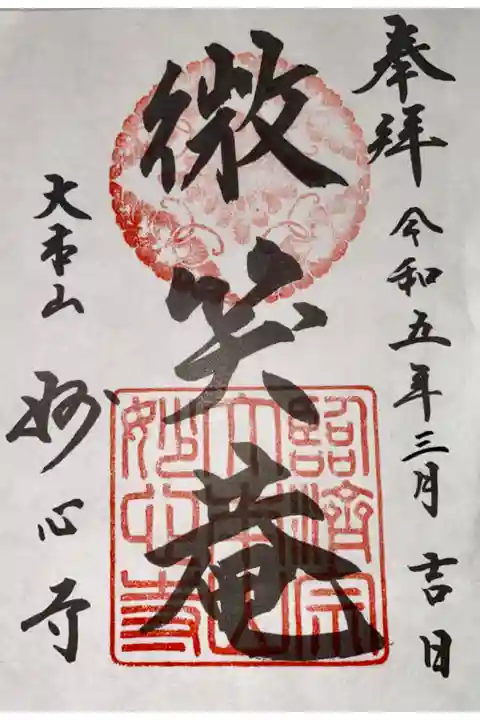 奉拝 令和五年三月吉日
微笑庵
臨済宗
大本山
妙心寺
大本山
妙心寺